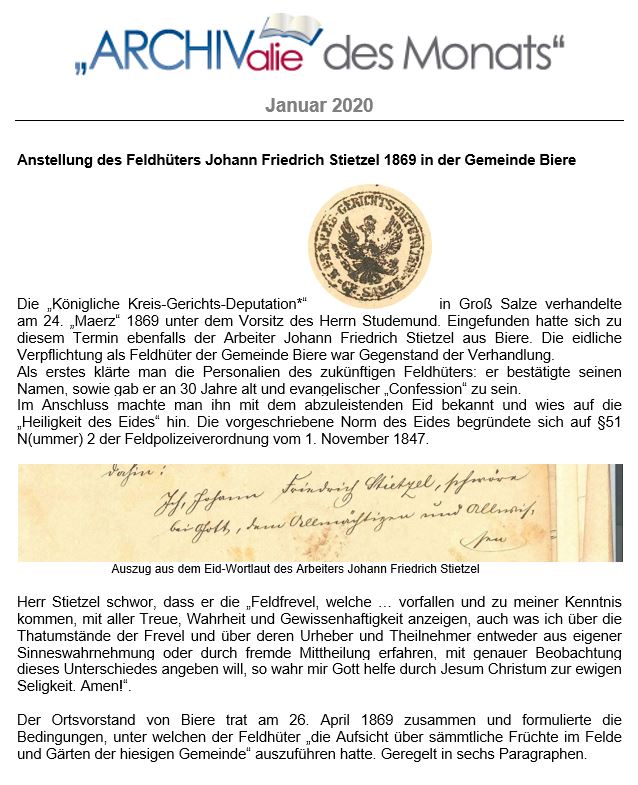 „ARCHIValie des Monats“
Januar 2020
Anstellung des Feldhüters Johann Friedrich Stietzel 1869 in der Gemeinde Biere
KREIS-GERICHTS-DEPUTATION
GR. SALZE
Die „Königliche Kreis-Gerichts-Deputation*“ in Groß Salze verhandelte
am 24. „Maerz“ 1869 unter dem Vorsitz des Herrn Studemund. Eingefunden hatte sich zu
diesem Termin ebenfalls der Arbeiter Johann Friedrich Stietzel aus Biere. Die eidliche
Verpflichtung als Feldhüter der Gemeinde Biere war Gegenstand der Verhandlung.
Als erstes klärte man die Personalien des zukünftigen Feldhüters: er bestätigte seinen
Namen, sowie gab er an 30 Jahre alt und evangelischer „Confession“ zu sein.
Im Anschluss machte man ihn mit dem abzuleistenden Eid bekannt und wies auf die
„Heiligkeit des Eides“ hin. Die vorgeschriebene Norm des Eides begründete sich auf §51
N(ummer) 2 der Feldpolizeiverordnung vom 1. November 1847.
dahin:
Ich, Johann Friedrich Stietzel, schwöre
bei Gott, dem Allmächtigen und Allwis-
sen
Auszug aus dem Eid-Wortlaut des Arbeiters Johann Friedrich Stietzel
Herr Stietzel schwor, dass er die „Feldfrevel, welche … vorfallen und zu meiner Kenntnis
kommen, mit aller Treue, Wahrheit und Gewissenhaftigkeit anzeigen, auch was ich über die
Thatumstände der Frevel und über deren Urheber und Theilnehmer entweder aus eigener
Sinneswahrnehmung oder durch fremde Mittheilung erfahren, mit genauer Beobachtung
dieses Unterschiedes angeben will, so wahr mir Gott helfe durch Jesum Christum zur ewigen
Seligkeit. Amen!“.
Der Ortsvorstand von Biere trat am 26. April 1869 zusammen und formulierte die
Bedingungen, unter welchen der Feldhüter „die Aufsicht über sämmtliche Früchte im Felde
und Gärten der hiesigen Gemeinde“ auszuführen hatte. Geregelt in sechs Paragraphen.